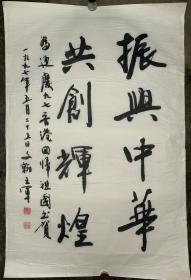 振興中華
共創輝煌
為迎慶九七香港回歸祖國書賀
一九九七年五月二十五日